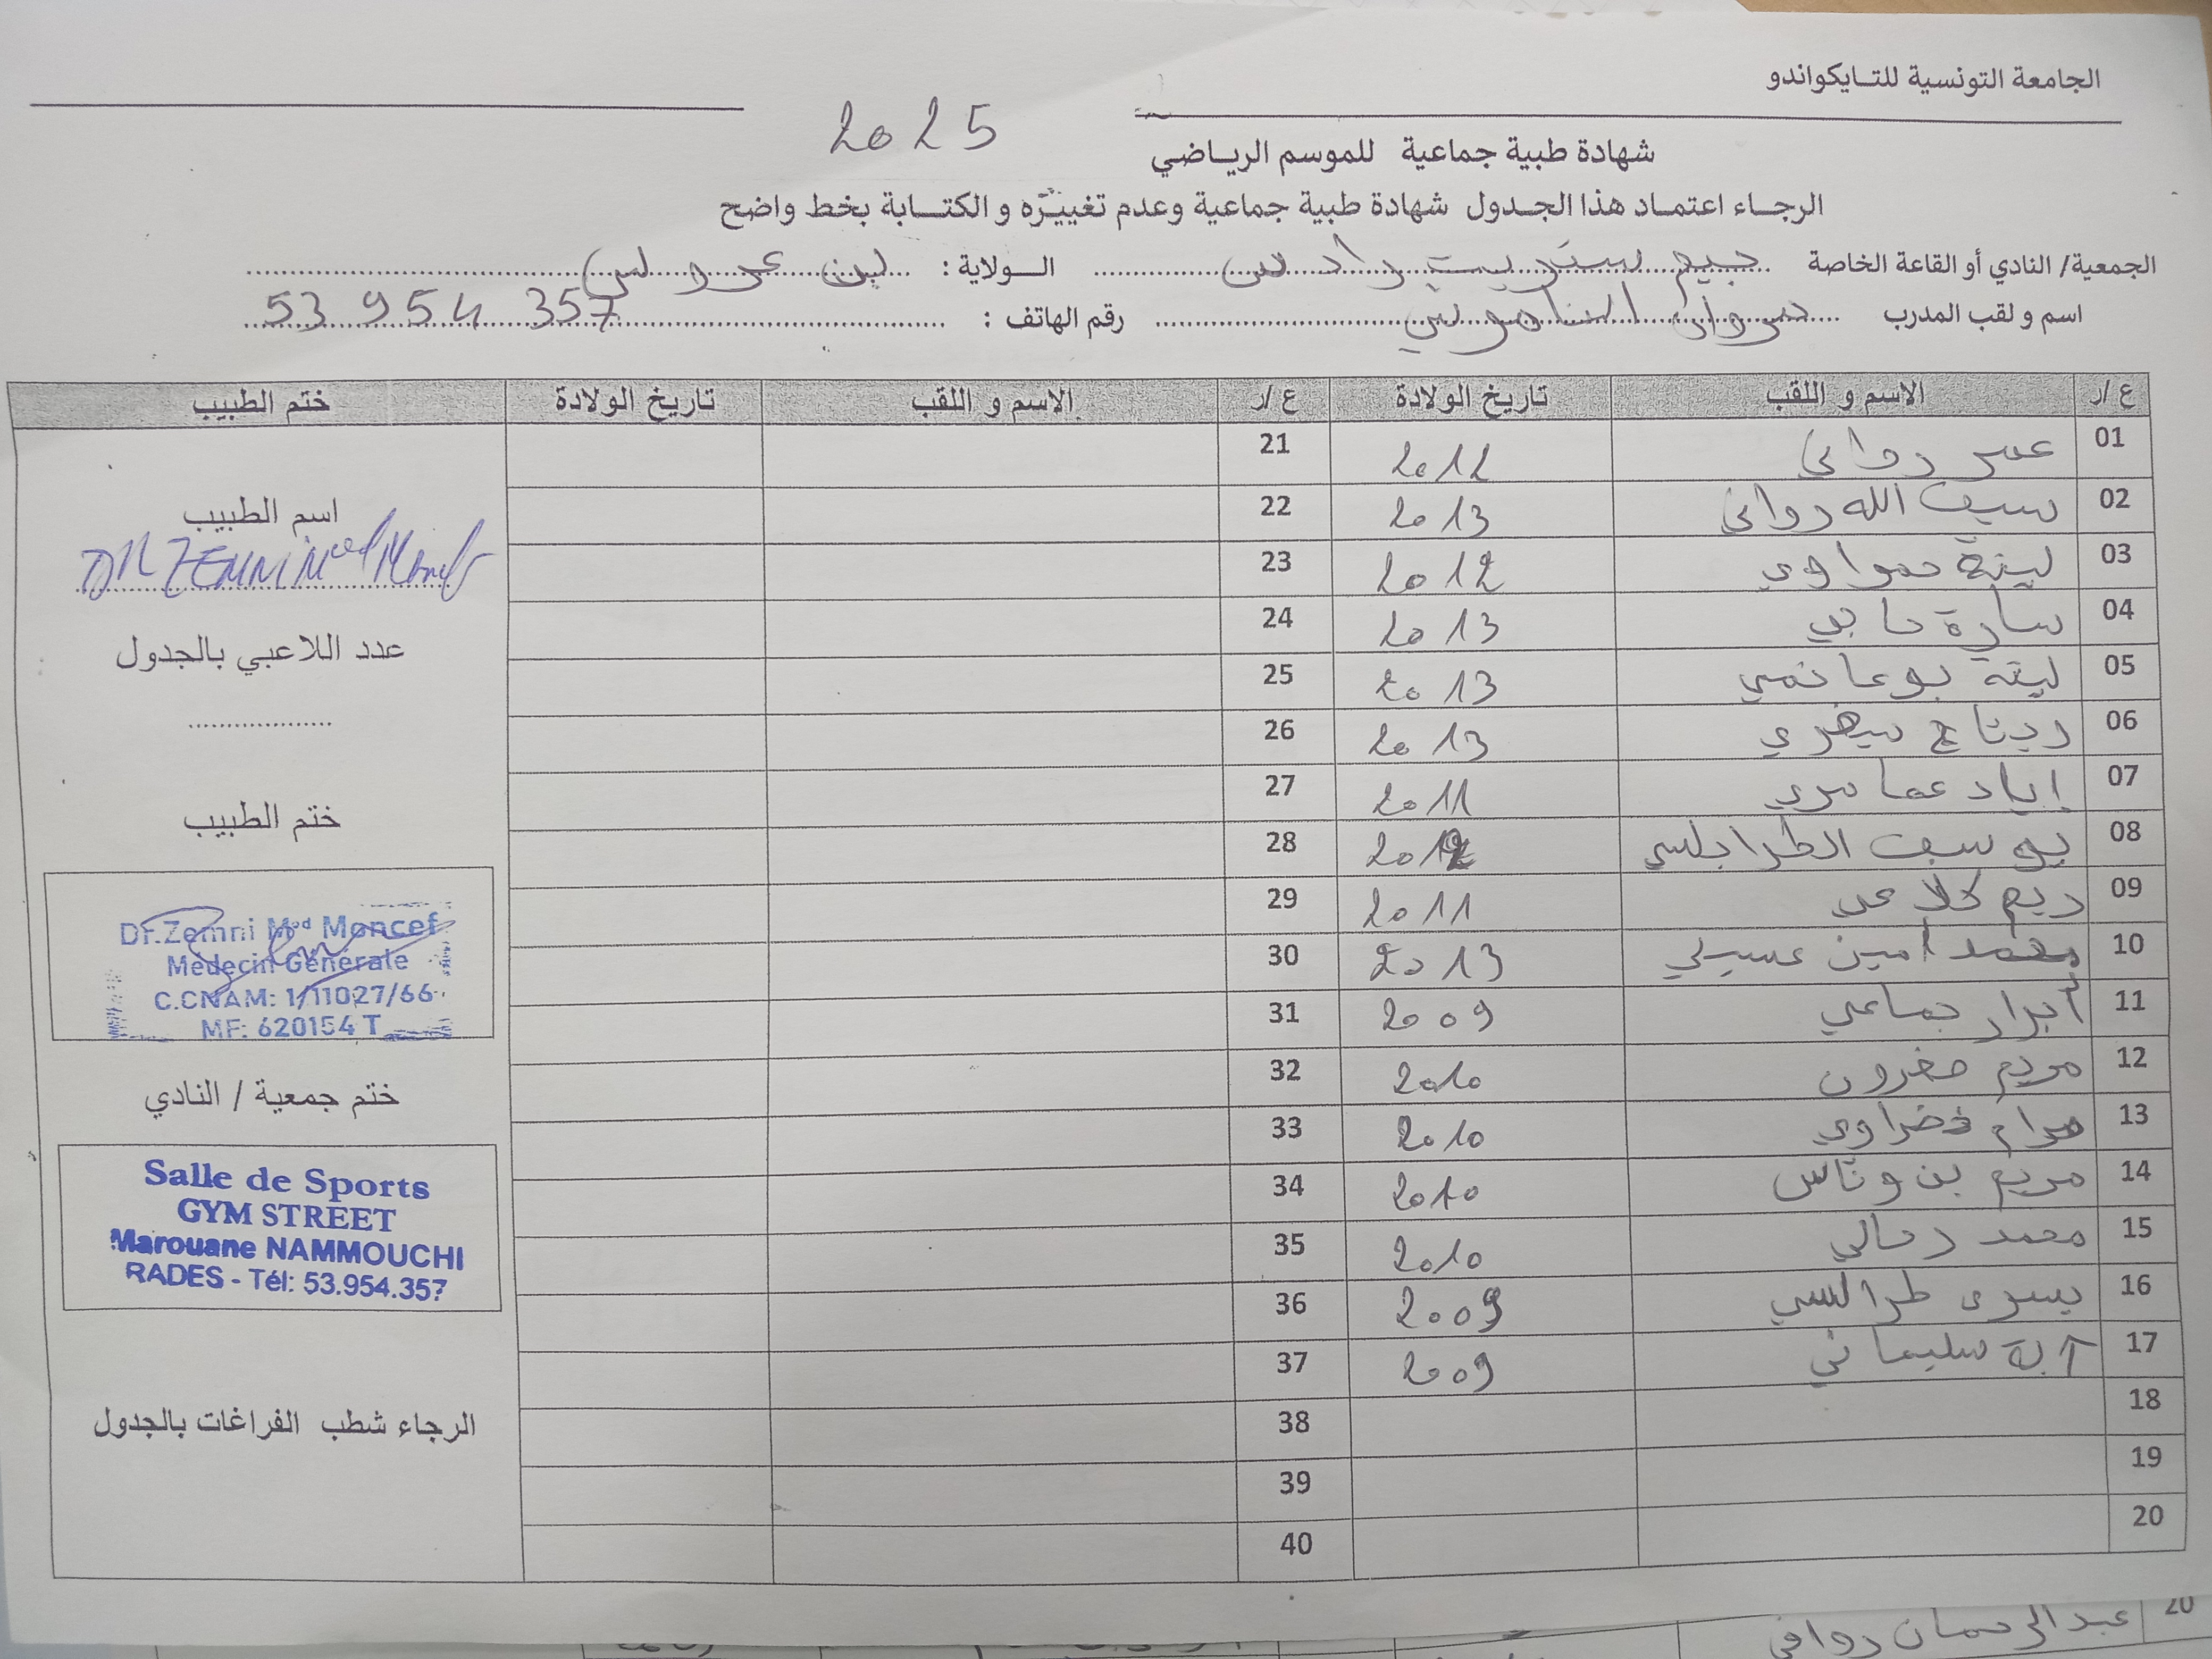 الجامعة التونسية للتايكواندو
شهادة طبية جماعية للموسم الرياضي 2025
الرجاء اعتماد هذا الجدول شهادة طبية جماعية وعدم تغييره و الكتابة بخط واضح
الجمعية/ النادي أو القاعة الخاصة جيم ستريت رادس الولاية : بن عروس
اسم و لقب المدرب مروان النموشي رقم الهاتف : 53 954 357
ع/ر الاسم و اللقب تاريخ الولادة ع/ر الاسم و اللقب تاريخ الولادة ختم الطبيب
01 عمر رواني 2012 21
02 سيف الله رواني 2013 22
03 لينة حمراوي 2012 23
04 سارة حاجي 2013 24
05 لينة بوعانمي 2013 25
06 ريتاج 2013 26
07 إياد عمامري 2011 27
08 يوسف الطرابلسي 2012 28
09 ريم كلاعي 2011 29
10 محمد امين عسيلي 2013 30
11 أبرار جماعي 2009 31
12 مريم مغرون 2010 32
13 مرام خضراوي 2010 33
14 مريم بن وناس 2010 34
15 محمد رحالي 2010 35
16 يسرى طرابلسي 2009 36
17 آية سليماني 2009 37
18 38
19 39
20 40
اسم الطبيب
DR ZEMNI Med Moncef
عدد اللاعبي بالجدول
ختم الطبيب
Dr.Zemni Med Moncef
Médecin Générale
C.CNAM: 1/11027/66
MF: 620154 T
ختم جمعية / النادي
Salle de Sports
GYM STREET
Marouane NAMMOUCHI
RADES - Tél: 53.954.357
الرجاء شطب الفراغات بالجدول
20 عبد الرحمان روافي